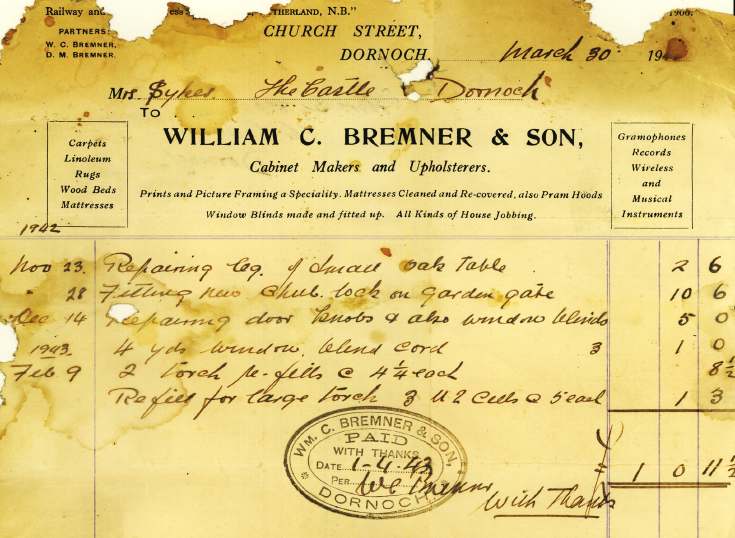 Railway and THERLAND, N.B."
1900.
PARTNERS:
W. C. BREMNER.
D. M. BREMNER.
CHURCH STREET,
DORNOCH, March 30 19
Mrs. Sykes The Castle Dornoch
To
WILLIAM C. BREMNER & SON,
Cabinet Makers and Upholsterers.
Prints and Picture Framing a Speciality. Mattresses Cleaned and Re-covered, also Pram Hoods
Window Blinds made and fitted up. All Kinds of House Jobbing.
Carpets
Linoleum
Rugs
Wood Beds
Mattresses
Gramophones
Records
Wireless
and
Musical
Instruments
1942
Nov 23. Repairing leg of small oak table 2 6
" 28 Fitting new Chub. lock on garden gate 10 6
Dec 14 Repairing door knobs & also window blinds 5 0
1943 4 yds window blind cord 3 1 0
Feb 9 2 torch re-fills @ 4¼ each 8½
Refill for large torch 3 U2 Cells @ 5 each 1 3
1 0 11½
WM. C. BREMNER & SON,
PAID
WITH THANKS
DATE 1-4-43
PER W C Bremner
DORNOCH
With Thanks